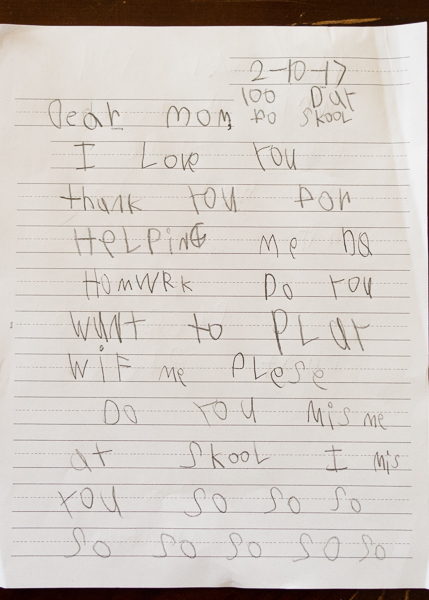 2-10-17
100 DaY
Dear mom, FO SKOOL
I Love YOU
thank YOU FOR
HeLPiNG me DO
HOMWRK Do YOU
WaNT to PLaY
WiF me PLeSe
DO YOU Mis me
at SKOOL I mis
YOU SO SO SO
SO SO SO SO SO